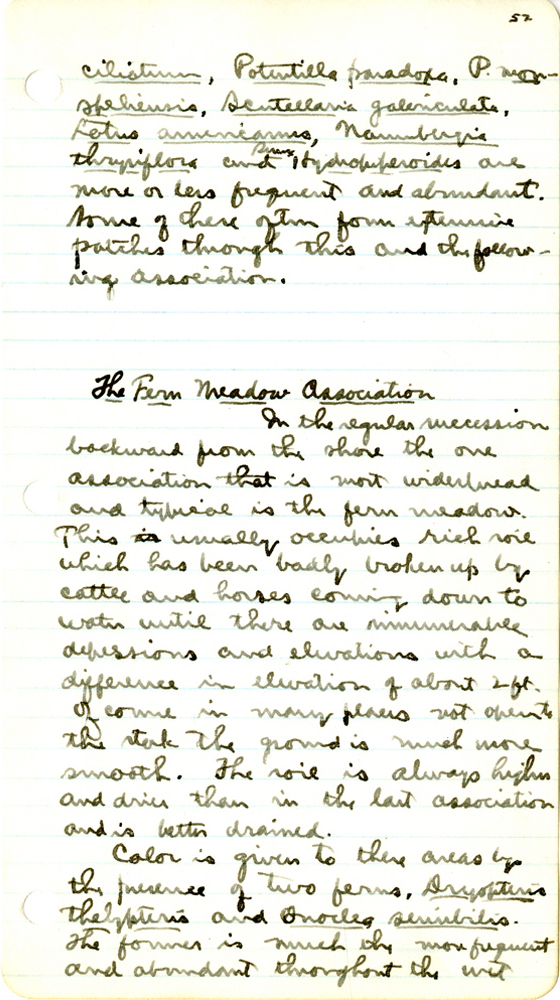 52
ciliatum, Potentilla paradoxa, P. mon-
speliensis, Scutellaria galericulata,
Lotus americanus, Naumbergia
thrysiflora and Hydropiperoides are
more or less frequent and abundant.
Some of these often form extensive
patches through this and the follow-
ing association.
The Fern Meadow Association
In the regular succession
backward from the shore the one
association that is most widespread
and typical is the fern meadow.
This is usually occupies rich soil
which has been badly broken up by
cattle and horses coming down to
water until there are innumerable
depressions and elevations with a
difference in elevation of about 2 ft.
Of course in many places not open to
the stock the ground is much more
smooth. The soil is always higher
and drier than in the last association
and is better drained.
Color is given to these areas by
the presence of two ferns, Dryopteris
thelypteris and Onoclea sensibilis.
The former is much the more frequent
and abundant throughout the wet